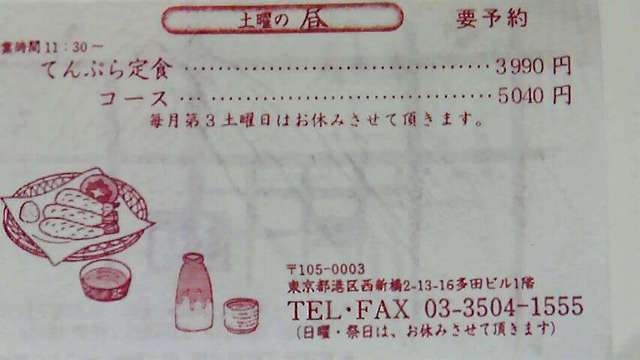 土曜の 昼 要予約
業時間11:30~
てんぷら定食 …………………………… 3990 円
コース … …………………………… 5040 円
毎月第3土曜日はお休みさせて頂きます。
〒105-0003
東京都港区西新橋2-13-16多田ビル1階
TEL・FAX 03-3504-1555
(日曜・祭日は、お休みさせて頂きます)